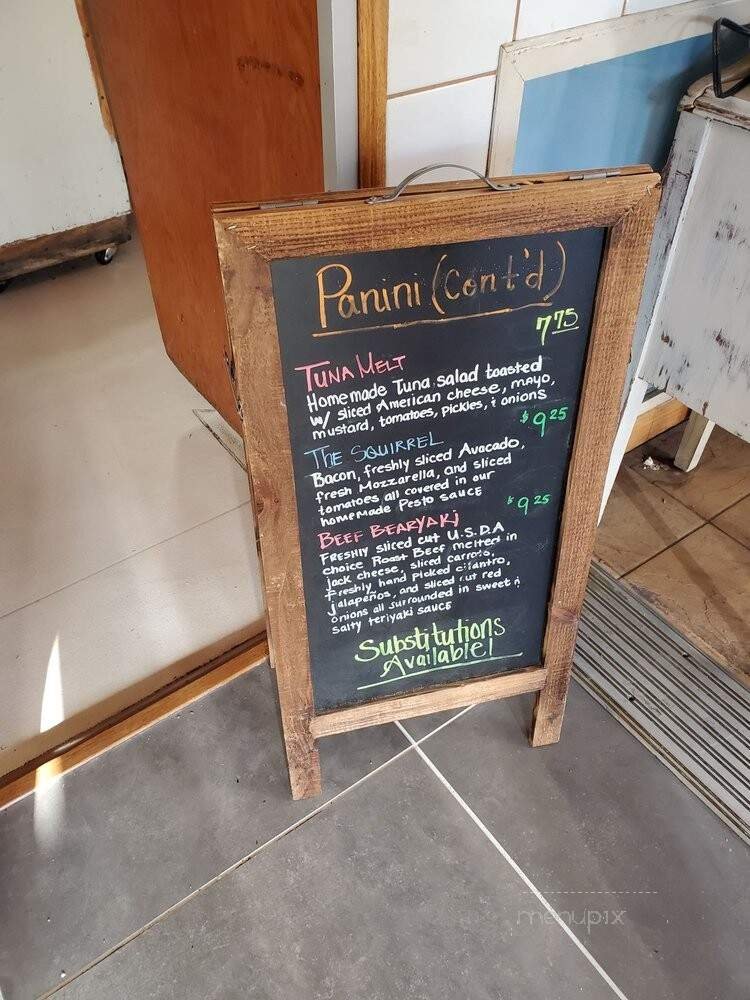 Panini (cont'd)
7 75
TUNA MELT
Homemade Tuna salad toasted
w/ sliced American cheese, mayo,
mustard, tomatoes, pickles, & onions
$9 25
THE SQUIRREL
Bacon, freshly sliced Avacado,
fresh Mozzarella, and sliced
tomatoes all covered in our
homemade Pesto sauce
$9 25
BEEF BEARYAKi
FRESHLY sliced cut U.S.D.A
choice Roast Beef melted in
jack cheese, sliced carrots,
Freshly hand picked cilantro,
jalapeños, and sliced cut red
onions all surrounded in sweet n
salty teriyaki sauce
Substitutions
Available!
menupix